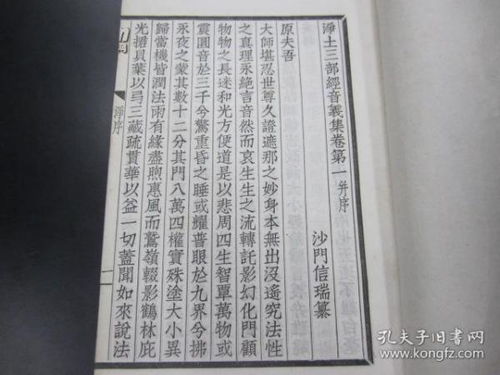 淨土三部經音義集卷第一并序
沙門信瑞纂
原夫吾
大師堪忍世尊久證遮那之妙身本無出沒遙究法性
之真理永絕言音然而哀生生之流轉託影幻化門顧
物物之長迷和光方便道是以悲周四生智覃萬物或
震圓音於三千兮驚重昏之睡或耀普眼於九界兮拂
永夜之蒙其數十二分其門八萬四權實殊塗大小異
歸當機皆潤法雨有緣盡煦惠風而鷲嶺輟影鶴林庇
光摭貝葉以弓三藏疏貫華以益一切蓋聞如來說法
淨序
一
孔夫子旧书网
www.kongfz.com